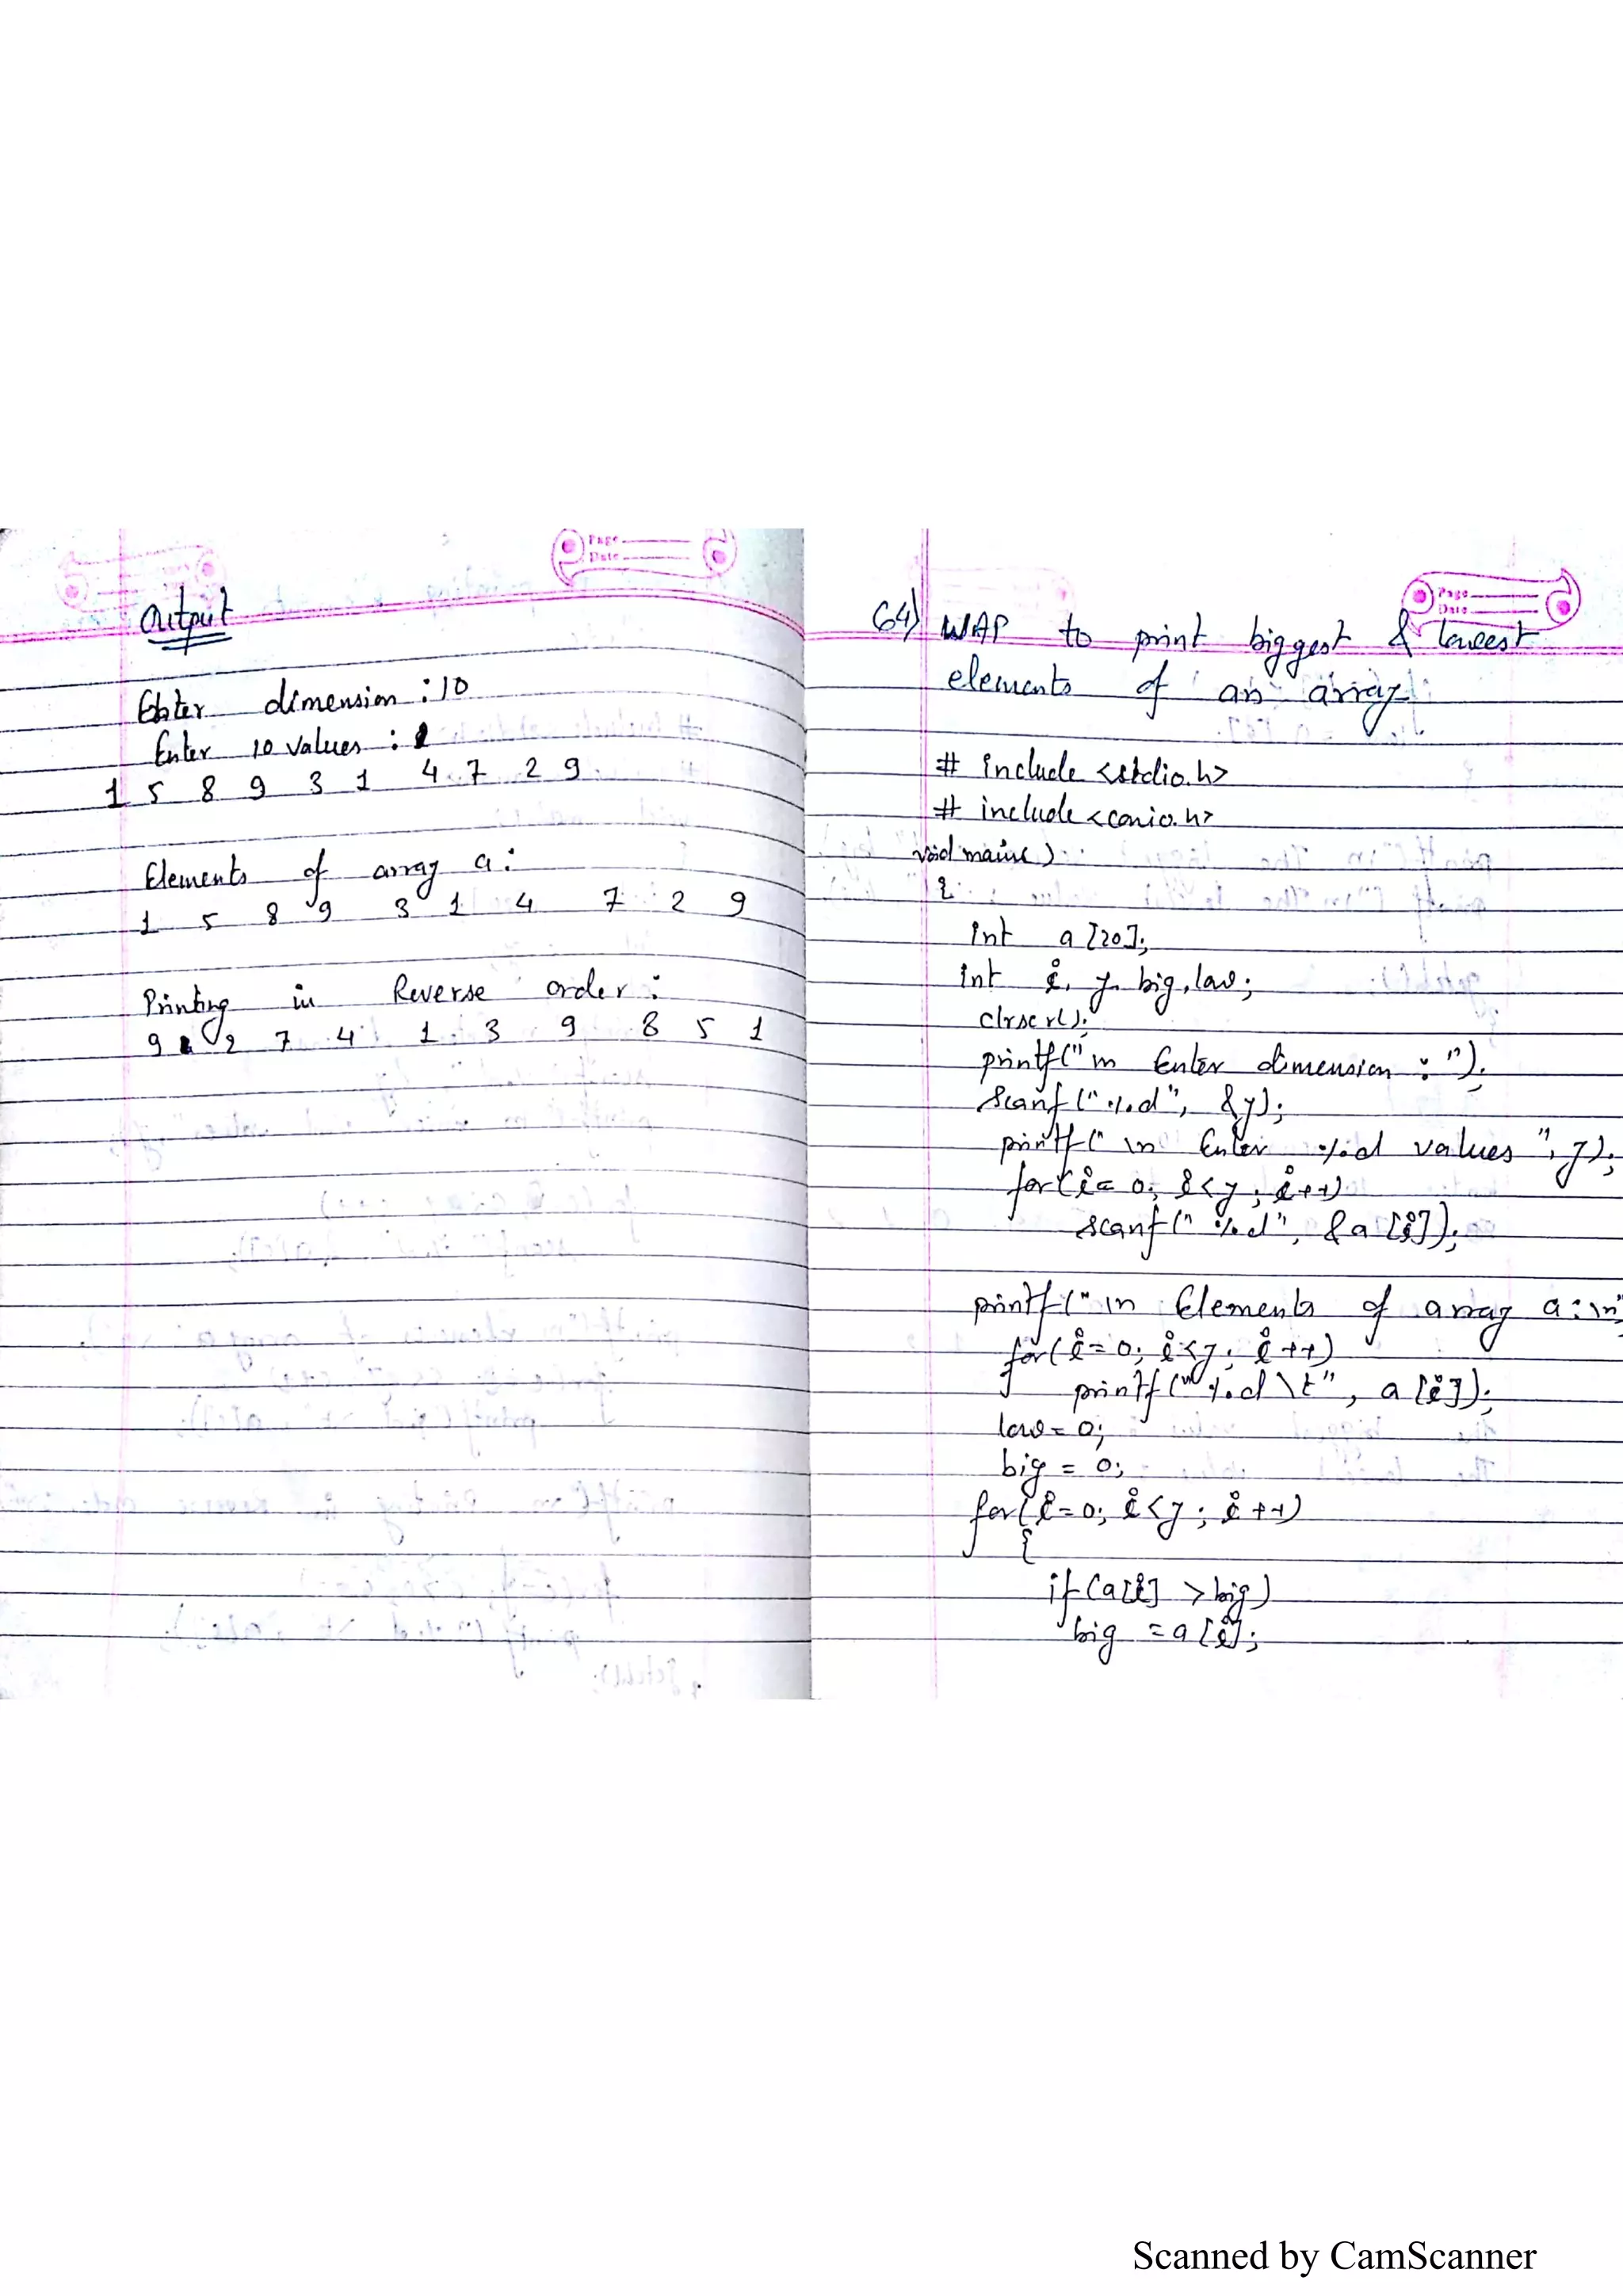 Page
Date
Output
Enter dimension : 10
Enter 10 values :
1 5 8 9 3 1 4 7 2 9
Elements of array a :
1 5 8 9 3 1 4 7 2 9
Printing in Reverse order :
9 2 7 4 1 3 9 8 5 1
Page
Date
64) WAP to print biggest & lowest
elements of an array
# include <stdio.h>
# include <conio.h>
void main( )
{
int a [20];
int i, y, big, low;
clrscr( );
printf("\n Enter dimension : ");
scanf ("%d", &y);
printf(" \n Enter %d values ", y);
for(i = 0; i<y ; i++)
scanf (" %d", &a [i]);
printf(" \n Elements of array a : \n"
for(i = 0; i<y ; i++)
printf("%d \t", a [i]);
low = 0;
big = 0;
for(i = 0; i<y ; i++)
{
if (a[i] > big)
big = a [i];
Scanned by CamScanner